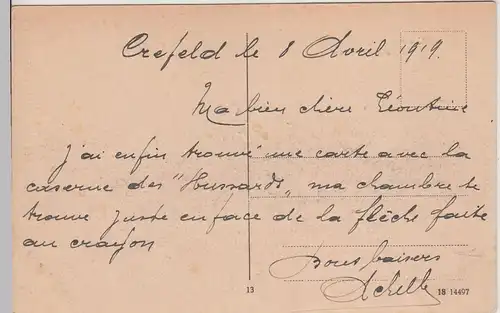 Crefeld le 8 Avril 1919.
Ma bien chère Léontine
J'ai enfin trouvé une carte avec la
caserne des "Hussards" ma chambre se
trouve juste en face de la flèche faite
au crayon
Bons baisers
Achille
13
18 14497